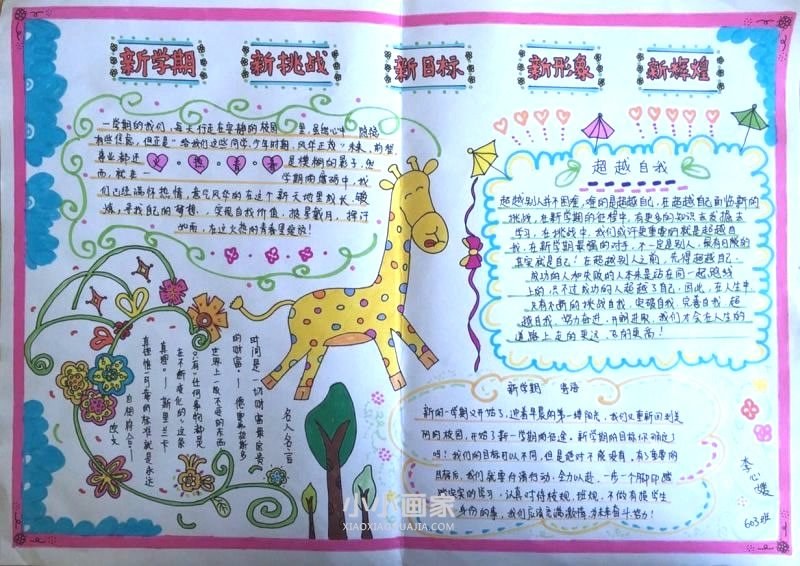 新学期 新挑战 新目标 新形象 新辉煌
一学期的我们,每天行走在安静的校园里,虽然心中隐隐
有些焦虑,但正是"恰我们这些同学少年时期,风华正茂"未来、前程
事业都还 火·热·青·春 是模糊的影子,然
而,就在一学期的鹰动中,我
们已经满怀热情,意气风华的在这个新天地里成长、锻
炼,寻找自己的梦想,实现自我价值,披星戴月,挥汗
如雨,在这火热的青春里绽放!
超越自我
超越别人并不困难,难的是超越自己,在超越自己面临新的
挑战,在新学期的征程中,有更多的知识去
学习,在挑战中,我们或许更重要的就是超越自
我,在新学期最强的对手,不一定是别人,最有可能的
其实就是自己!在超越别人之前,先得超越自己。
成功的人和失败的人本来是站在同一起跑线
上的,只不过成功的人超越了自己,因此,在人生中
只有不断的挑战自我,突破自我,完善自我,超
越自我,努力奋进,开朗进取,我们才会在人生的
道路上走的更远,飞的更高!
名人名言
时间是一切财富中最宝贵
的财富。——德奥弗拉斯多
世界上一成不变的东西
只有"任何事物都是
在不断变化的"这条
真理。——斯里兰卡
真理惟一可靠的标准就是永远
自相符合。——
欧文
新学期 寄语
新的一学期又开始了,迎着早晨的第一缕阳光,我们又重新回到美
丽的校园,开始了新一学期的征途。新学期的目标你确定了
吗?我们的目标可以不同,但是绝对不能没有。有了重要的
目标后,我们就要付诸行动,全力以赴,一步一个脚印踏
踏实实的学习,认真对待校规、班规,不做有损学生
身份的事,我们应该充满激情,为未来奋斗努力!
李心媛
603班
小小画家
XIAOXIAOHUAJIA.COM